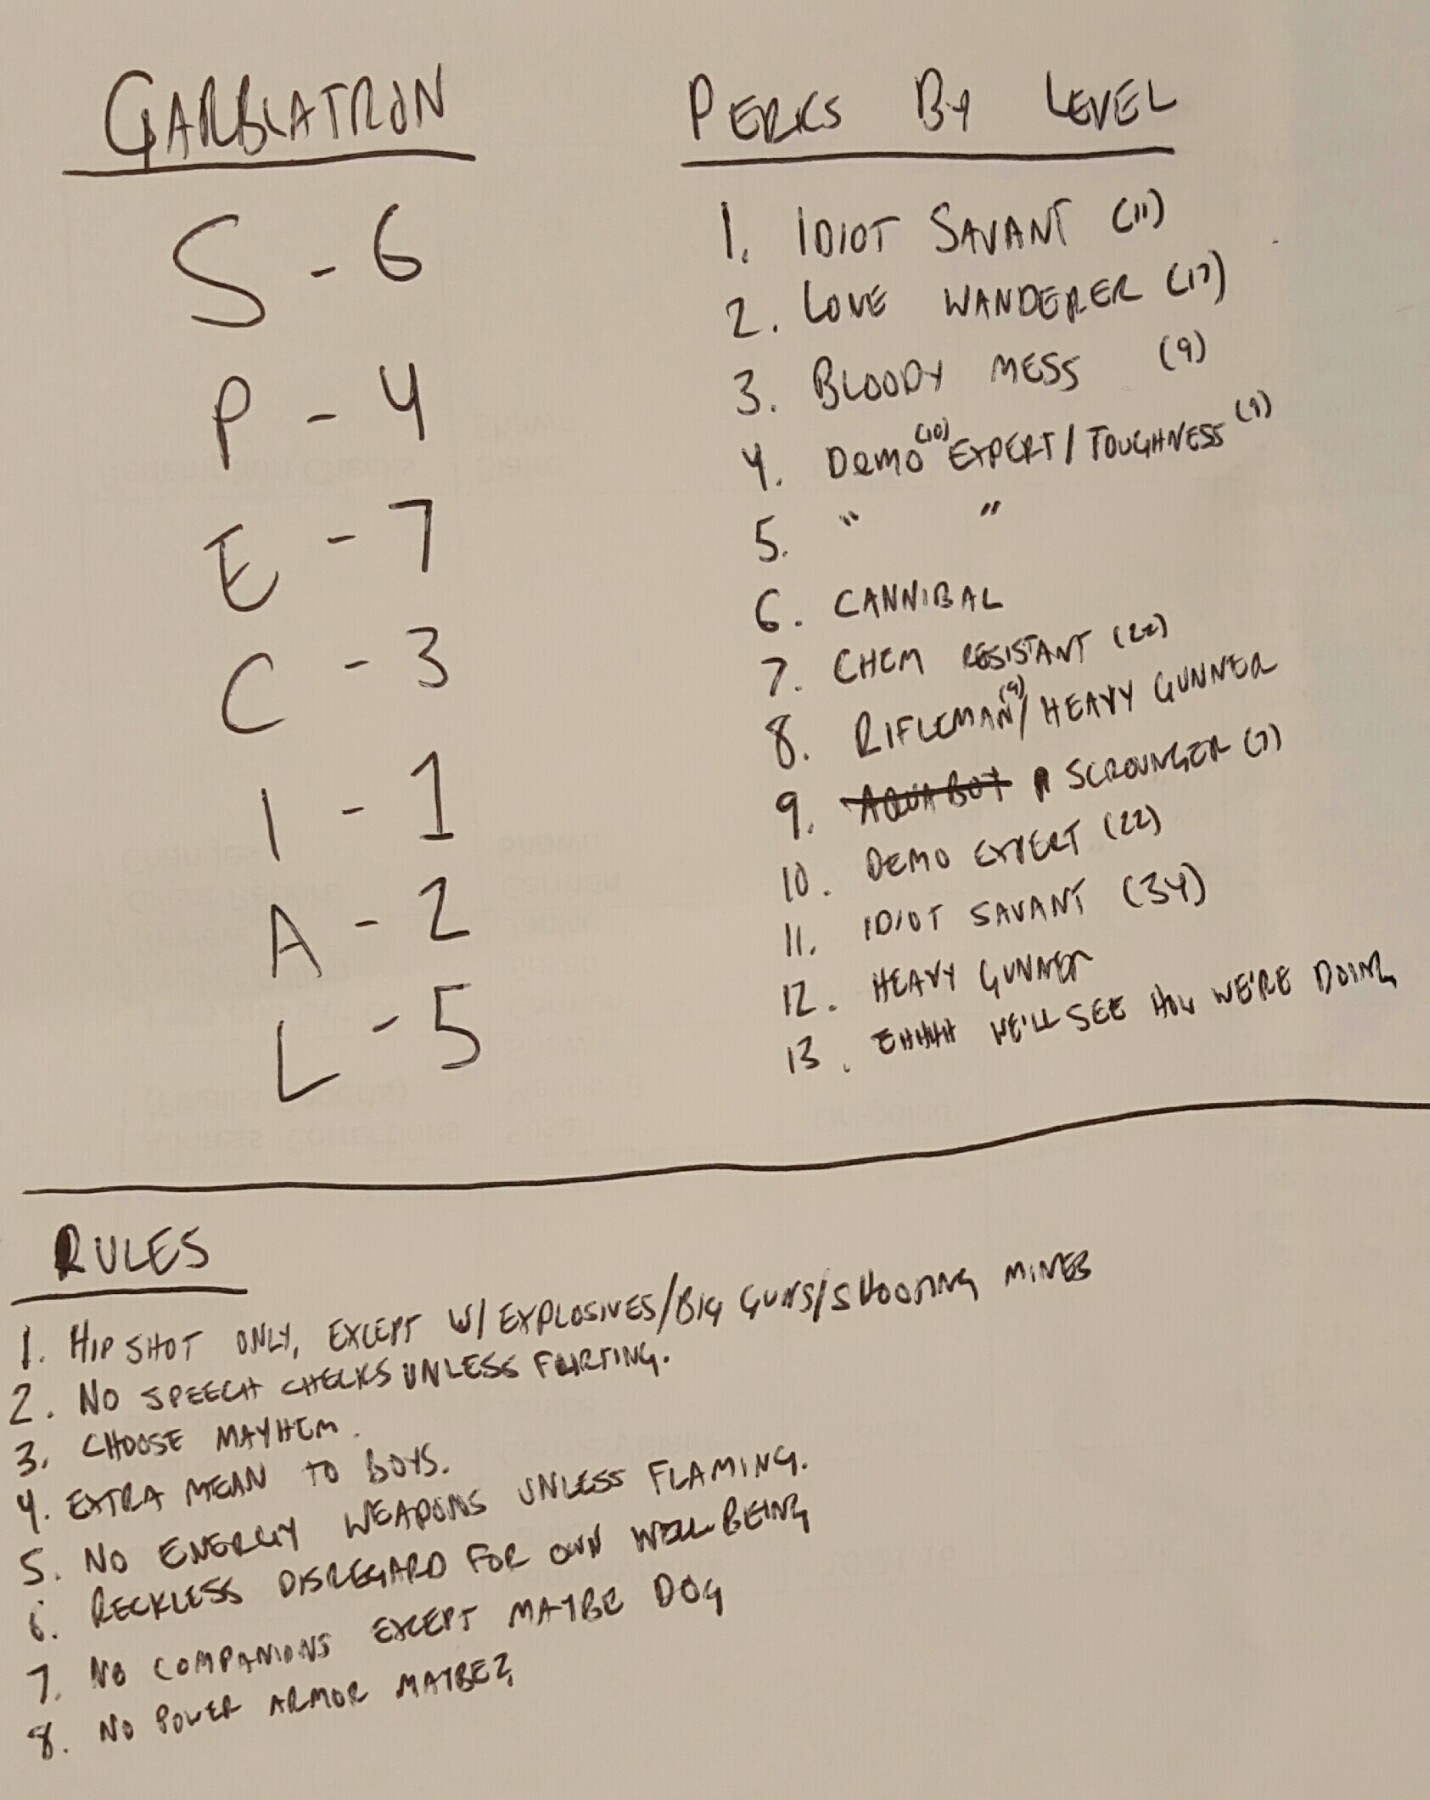 GARBLATRON
S - 6
P - 4
E - 7
C - 3
I - 1
A - 2
L - 5
PERKS BY LEVEL
1. IDIOT SAVANT (11)
2. LOVE WANDERER (17)
3. BLOODY MESS (9)
4. DEMO (10) EXPERT / TOUGHNESS (9)
5. " "
6. CANNIBAL
7. CHEM RESISTANT (22)
8. RIFLEMAN (9) / HEAVY GUNNER
9. AQUA BOY SCROUNGER (7)
10. DEMO EXPERT (22)
11. IDIOT SAVANT (34)
12. HEAVY GUNNER
13. EHHHH WE'LL SEE HOW WE'RE DOING
RULES
1. HIP SHOT ONLY, EXCEPT W/ EXPLOSIVES/BIG GUNS/SHOOTING MINES
2. NO SPEECH CHECKS UNLESS FLIRTING.
3. CHOOSE MAYHEM.
4. EXTRA MEAN TO BOYS.
5. NO ENERGY WEAPONS UNLESS FLAMING.
6. RECKLESS DISREGARD FOR OWN WELL-BEING
7. NO COMPANIONS EXCEPT MAYBE DOG
8. NO POWER ARMOR MAYBE?